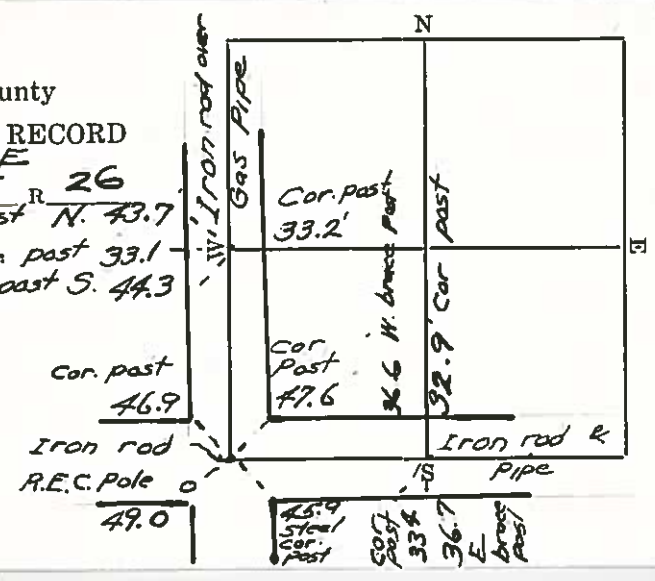 N
unty
RECORD
E
R 26
st N. 43.7
post 33.1
post S. 44.3
'Iron rod over
Gas Pipe
W
Cor. post
33.2'
36.6 W. brace Post
32.9' Cor post
E
Cor. post
46.9
Cor.
Post
47.6
Iron rod
Iron rod &
Pipe
R.E.C. Pole
49.0
S
steel
cor.
post
Cor
post
36.7
E
brace
post